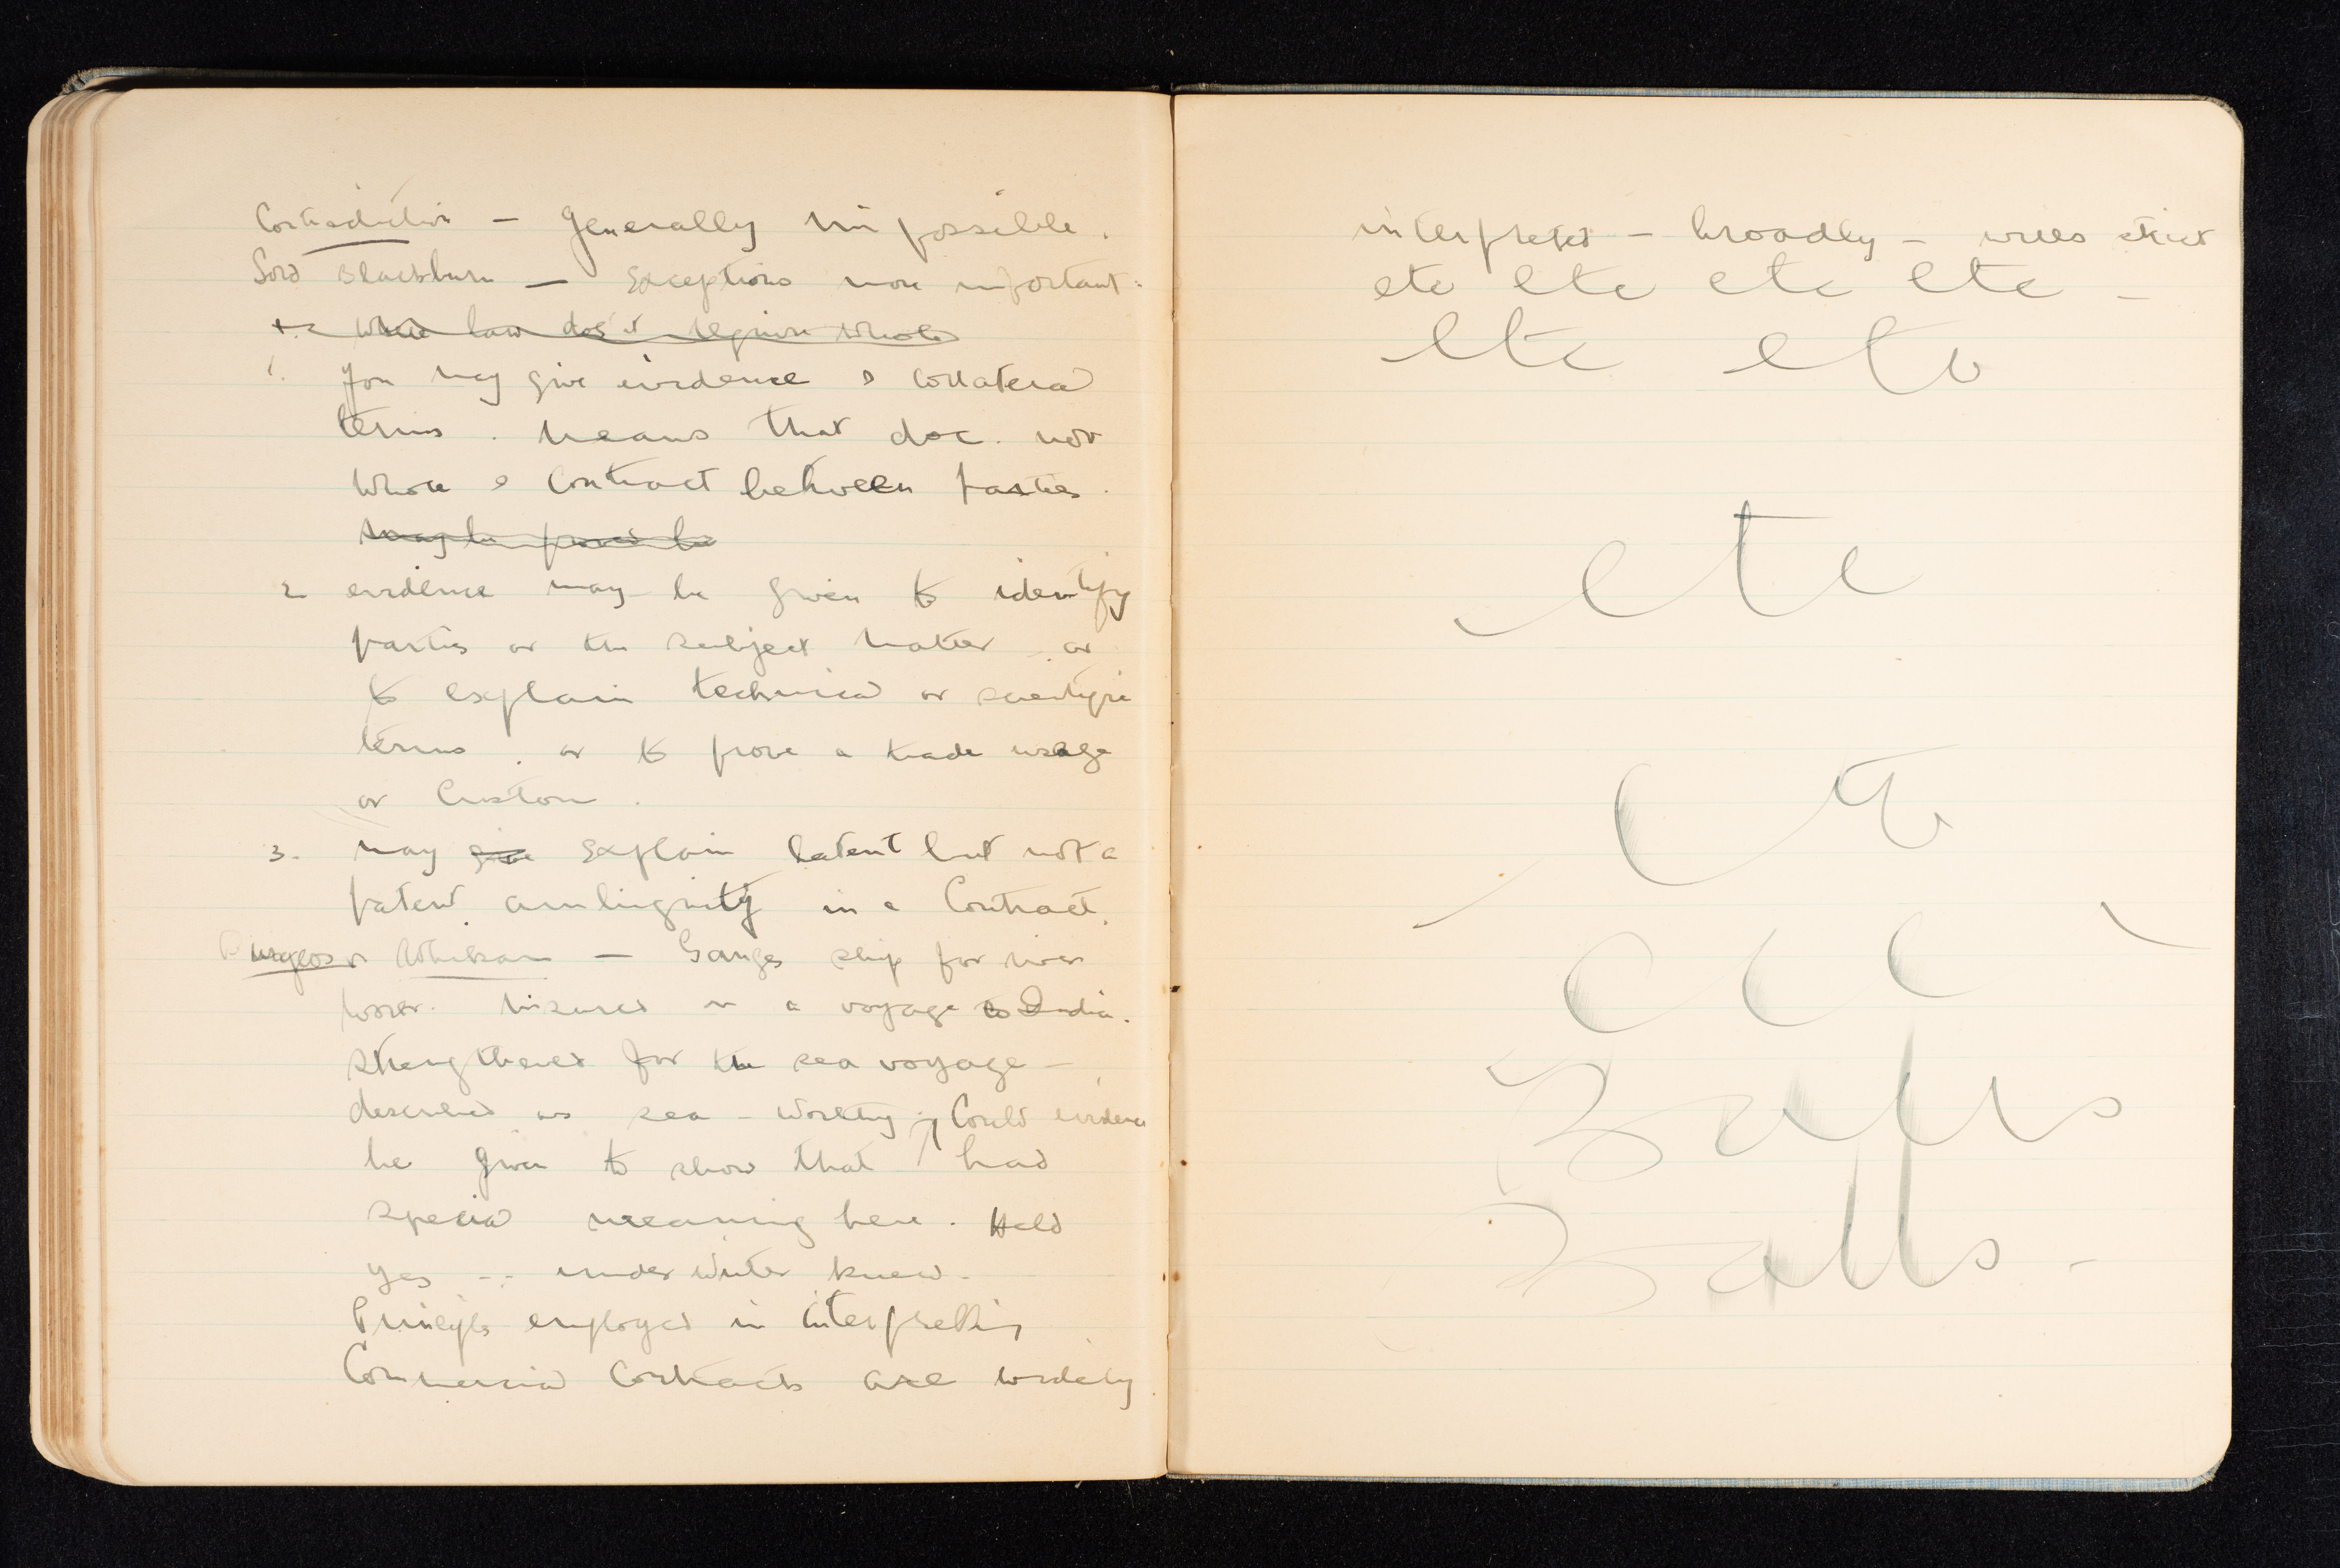 Contradiction — Generally impossible.
Lord Blackburn — Exceptions more important:
1. Where law does'nt require whole
1. You may give evidence of collateral
terms. Means that doc. not
whole of Contract between parties.
may be proved be
2 evidence may be given to identify
parties or the subject matter or
to explain technical or scientific
terms, or to prove a trade usage
or Custom.
3. may give explain latent but not a
patent ambiguity in a Contract.
v — Ganges ship for river
Insured on a voyage to India.
Strengthened for the sea voyage —
described as sea-worthy. Could evidence
be given to show that had
special meaning here. Held
yes — underwriter knew.
Principles employed in interpreting
Commercial Contracts are widely
interpreted — broadly — wills strict
etc etc etc etc —
etc etc
etc
etc
etc
Balls
Balls —